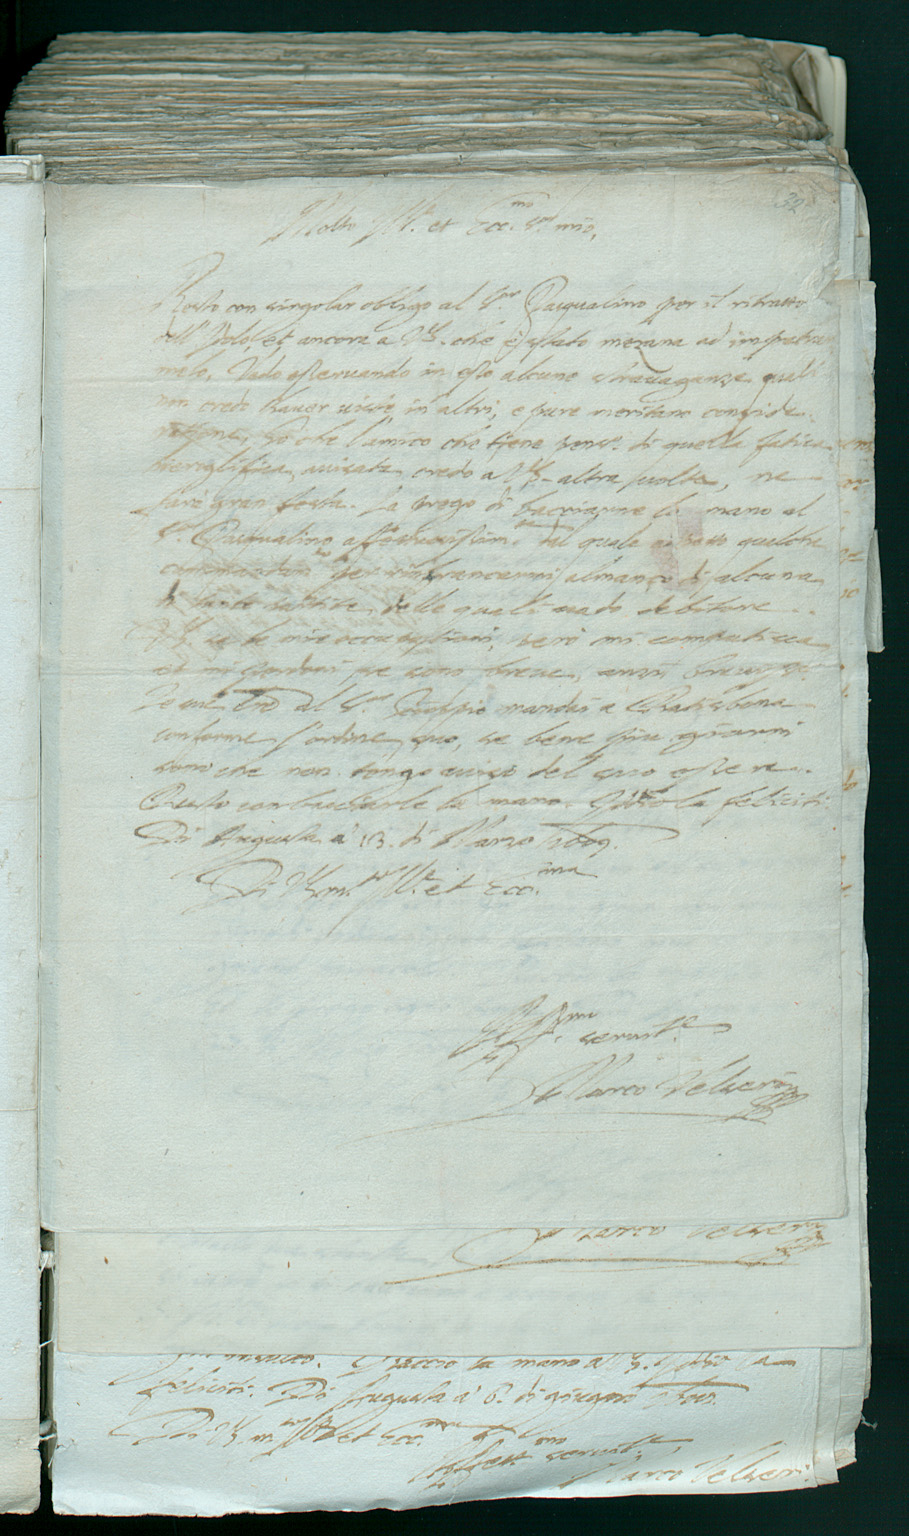 32
Molto Ill.re et Ecc.mo S.or mio,
Resto con singolar obligo al S.or Pasqualino per il ritratto
dell' Idolo, et ancora a VS. che è stato mezana ad impetrar
melo. Vado osservando in esso alcune stravaganze quali
non credo haver viste in altri, e pure meritano conside
ratione. So che l'amico che tiene pens.o di quella fatica
hieriglifica, avisata credo a VS. altra volta, ne
farà gran festa. La prego di bacciarne la mano al
S.or Pasqualino affectuosissim.te dal quale qualche
almanco di alcuna
tante delle quali vado debitore.
VS. sa le mie occupationi, però mi compatisca
et mi perdoni, se sono breve, anzi
al S.or Scioppio mandai a Ratisbona
conforme l'ordine suo, se bene piu giorni
sono che non tengo aviso del suo essere.
Resto con bacciarle la mano. Iddio la feliciti.
Di Augusta a' 13. di Marzo 1609.
Di VS. m.to Ill.re et Ecc.ma
Aff.mo servit.re
Marco Velseri
Marco Velseri
Baccio la mano a VS. Iddio la
feliciti. Di Augusta a' 6. di giugno
Di VS. m.to Ill.re et Ecc.ma
Aff.mo servit.re
Marco Velseri